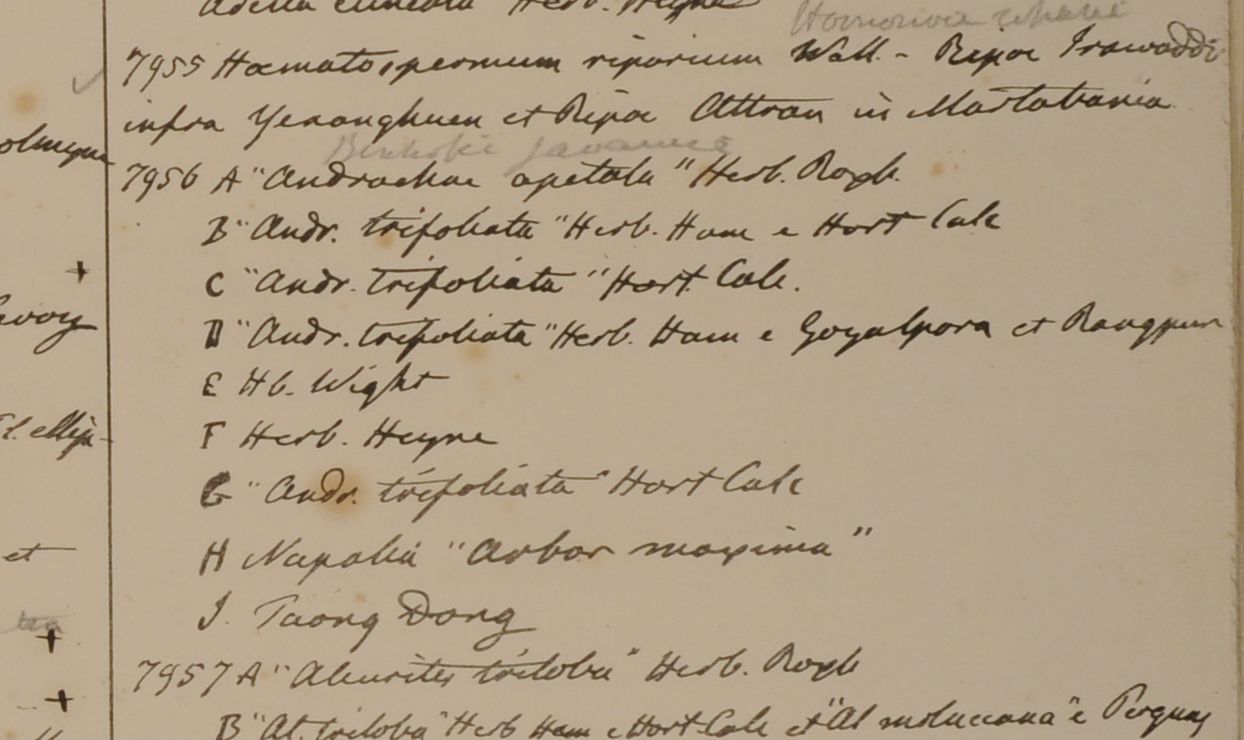 Adelia cuneata Herb. Heyne
Homonoia riparia
7955 Hæmatospermum riparium Wall. - Ripae Irawaddi
infra Yenanghuen et Ripae Attran in Martabania
Bischofia javanica
7956 A "Andrachne apetala" Herb. Roxb.
B "Andr. trifoliata" Herb. Ham e Hort Calc
C "Andr. trifoliata" Hort. Calc.
D "Andr. trifoliata" Herb. Ham e Goyalpora et Rangpur
E Hb. Wight
F Herb. Heyne
G "Andr. trifoliata" Hort Calc
H Napalia "Arbor maxima"
I. Taong Dong
7957 A "Aleurites triloba" Herb. Roxb
B "Al. triloba" Herb Ham e Hort Calc et "Al moluccana" e
et